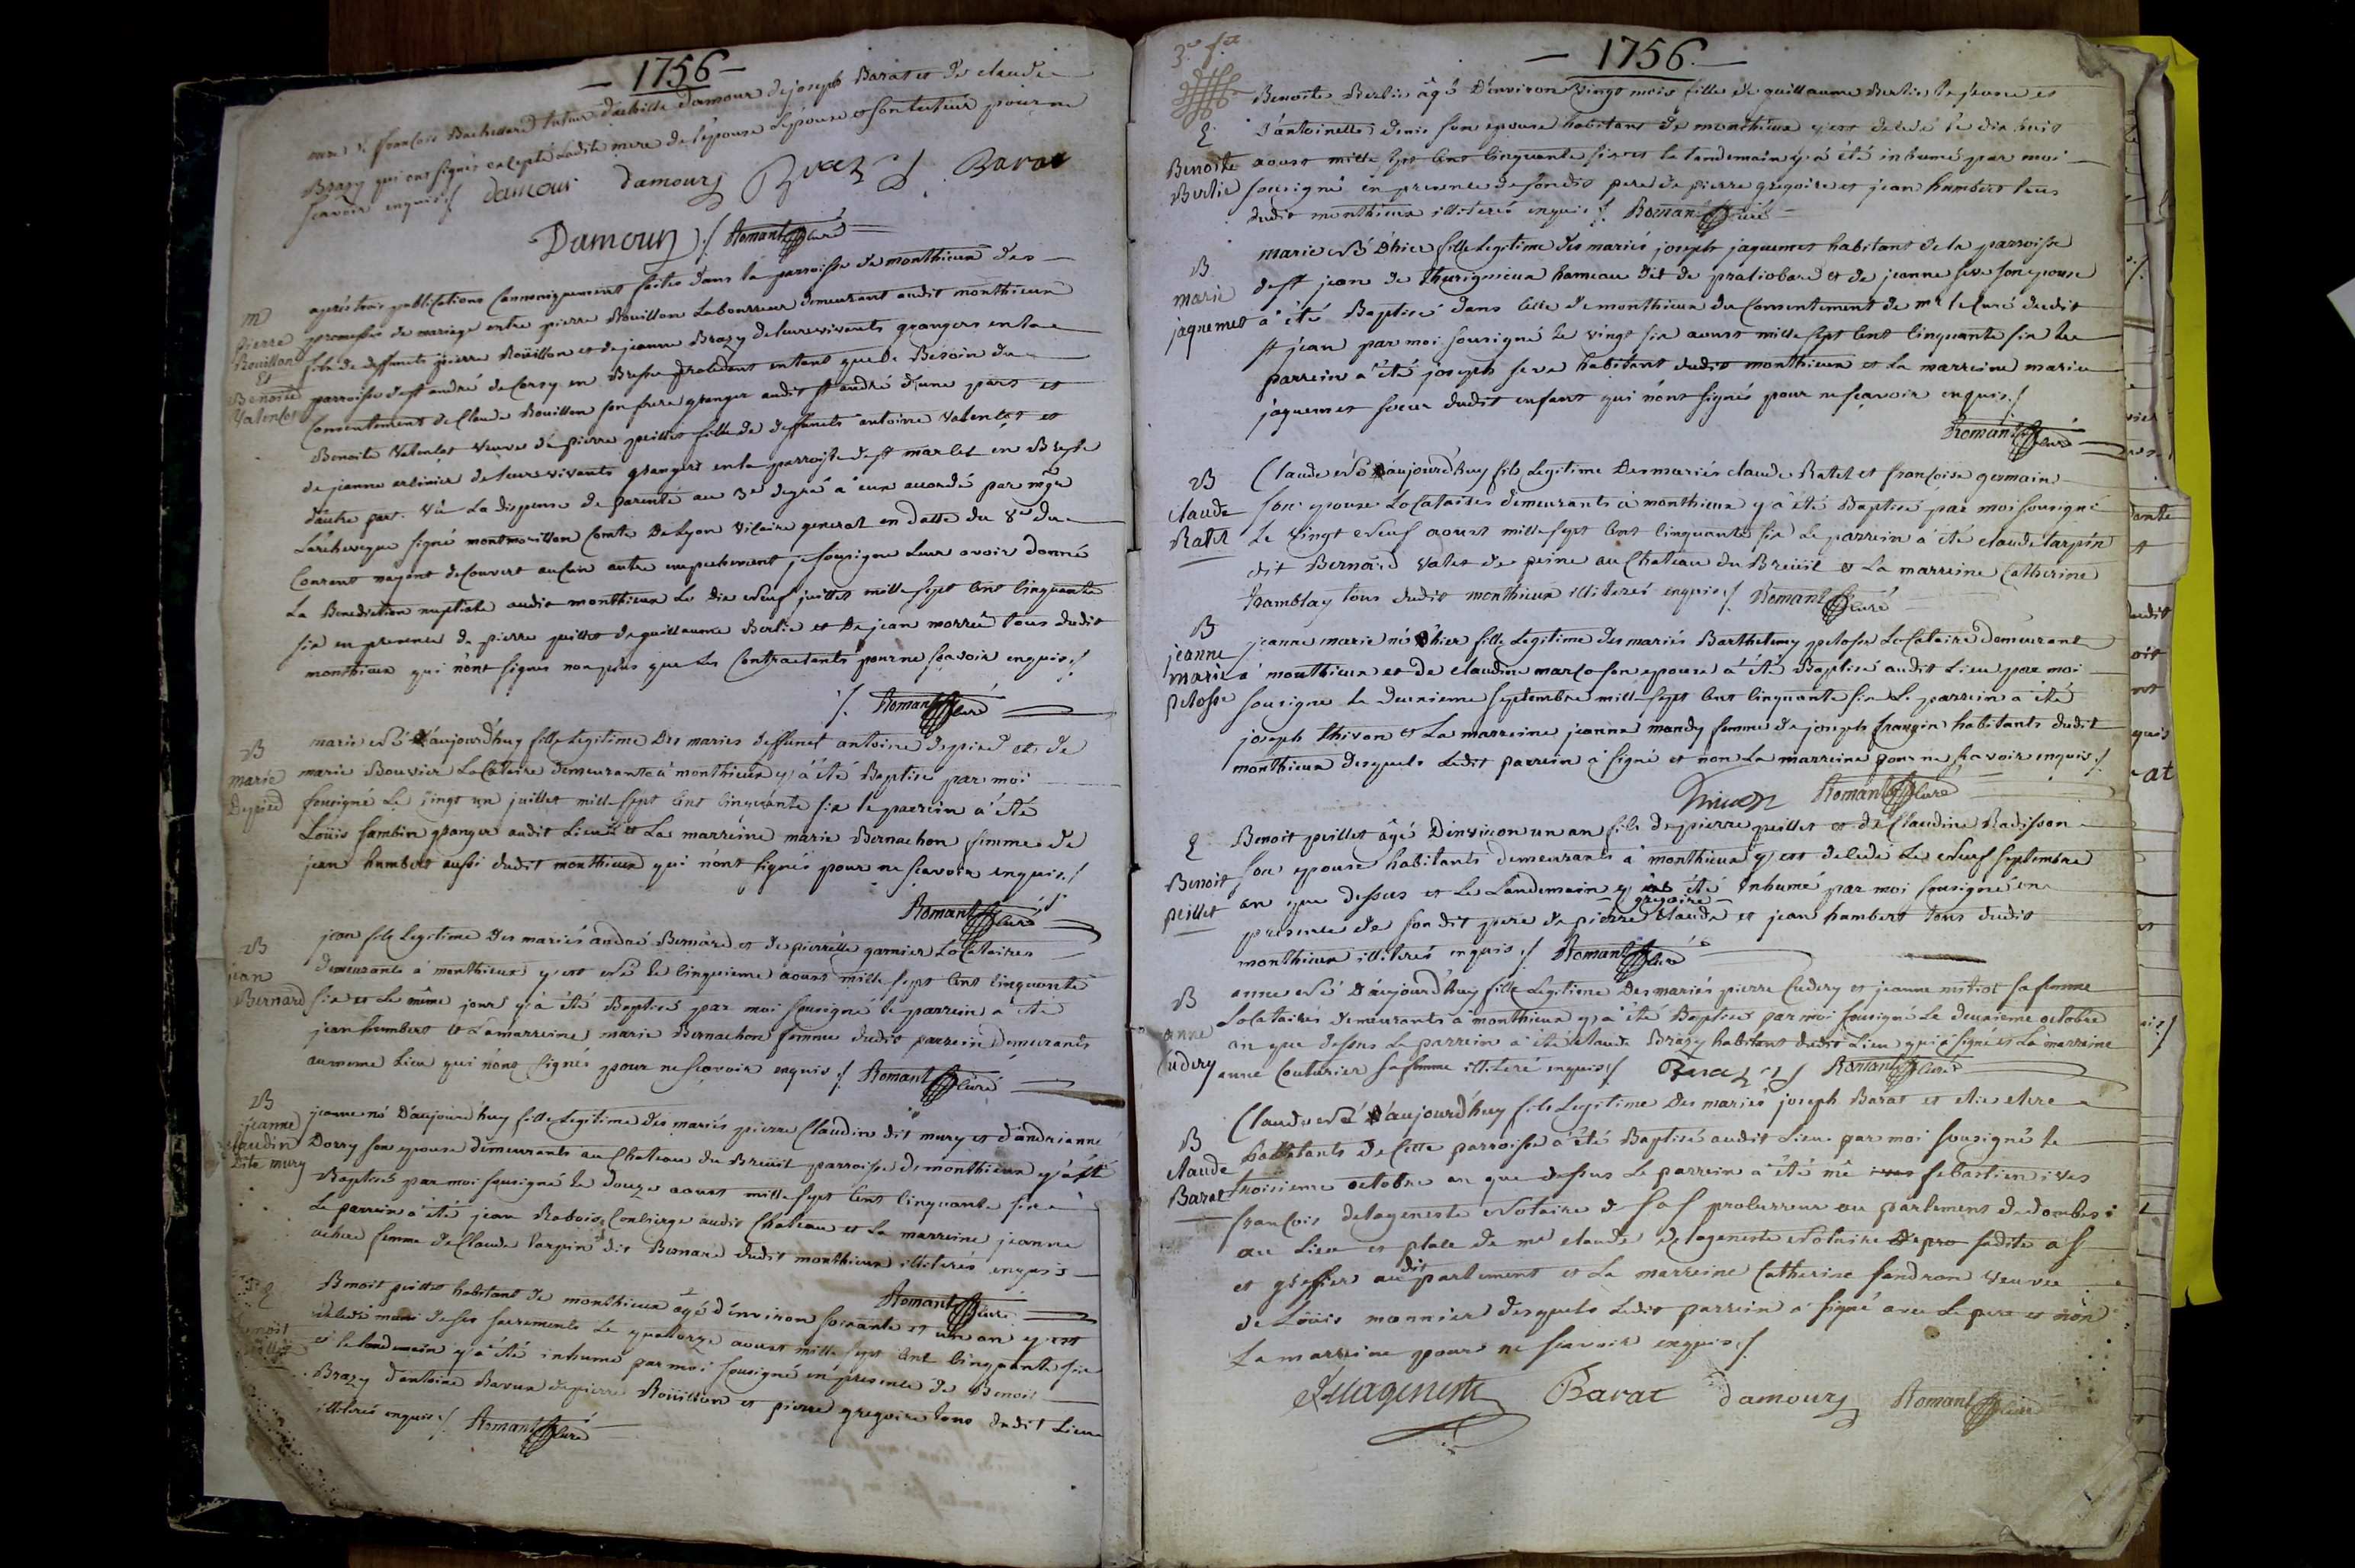 - 1756 -
mre s. françois Bachellard tuteur d'achille damour de joseph Barat et de claude
Brazy qui ont signés excepté ladite mere de l'épouse l'épouse et son tuteur pour ne
scavoir enquis ./. damour damours Brazy Barat
Damours ./. Romant curé
m
pierre
Roüillon
Et
Benoite
Valentot
après trois publications cannoniquement faites dans la parroisse de monthieux des
promesses de mariage entre pierre Roüillon Laboureur demeurant audit monthieux
fils de deffunts pierre Roüillon et de jeanne Brazy de leurs vivants grangers en la
parroisse de st andré de Corsy en Bresse procedant en tant que de Besoin du
Consentement de Claude Roüillon son frere granger audit st andré d'une part et
Benoite Valentot veuve de pierre peillet fille de deffunts antoine Valentot et
de jeanne de leurs vivants grangers en la parroisse de st marcel en Bresse
d'autre part. Vû La dispense de parenté au 3e degré à eux accordé par mgr
L'archeveque signé montmorillon Comte De Lyon vicaire general en datte du 8e du
Courant n'ayant decouvert aucun autre empechement je sousigné Leur avoir donné
La Benediction nuptiale audit monthieux Le dix neuf juillet mille sept cent cinquante
six en presence de pierre peillet de guillaume Berlie et De jean morrel tous dudit
monthieux qui n'ont signés non plus que les Contractants pour ne scavoir enquis ./.
./. Romant curé
B
marie
Depied
marie Né d'aujourd'huy fille Legitime Des mariés deffunct antoine depied et de
marie Bouvier Locataire demeurante à monthieux y a été Baptisé par moi
sousigné Le vingt un juillet mille sept cent cinquante six le parrein a été
Loüis sambin granger audit Lieu et La marreine marie Bernachon femme de
jean humbert aussi dudit monthieux qui n'ont signés pour ne scavoir enquis ./.
Romant curé
B
jean
Bernard
jean fils Legitime Des mariés andré Bernard et de pierrette garnier Locataires
demeurants à monthieux y est Né le cinquieme aoust mille sept cent cinquante
six et Le même jour y a été Baptisé par moi sousigné le parrein a été
jean humbert et La marreine marie Bernachon femme dudit parrein demeurants
au meme Lieu qui n'ont signés pour ne scavoir enquis ./. Romant curé
B
jeanne
Claudin
Dite mury
jeanne né D'aujourd'huy fille Legitime des mariés pierre Claudin dit mury et d'andrianne
Dorry son epouse demeurants au Chateau du Breüil parroisse de monthieux y a été
Baptisé par moi sousigné le douze aoust mille sept cent cinquante six
Le parrein a été jean Rabois Concierge audit Chateau et La marreine jeanne
femme de Claude Tarpin dit Bernard dudit monthieux illiterés enquis
Romant curé
Benoit peillet habitant de monthieux âgé d'environ soixante et un an y est
decedé muni de ses sacrements Le quatorze aoust mille sept cent cinquante six
et le lendemain y a été inhumé par moi sousigné en presence de Benoit
Brazy d'antoine Ravux de pierre Roüillon et pierre gregoire tous dudit Lieu
illiterés enquis ./. Romant curé
3e ft
- 1756 -
Benoite
Berlie
Benoite Berlie âgé D'environ vingt mois fille de guillaume Berlie le jeune et
d'antoinette denis son epouse habitant de monthieux y est decedé le dix huit
aoust mille sept cent cinquante six et le lendemain y a été inhumé par moi
sousigné en presence de sondit pere de pierre gregoire et jean humbert tous
dudit monthieux illiterés enquis ./. Romant curé
B
marie
jaquemet
marie Né D'hier fille Legitime des mariés joseph jaquemet habitant de la parroisse
de st jean de Thurigneux hameau dit de pratiobard et de jeanne seve son epouse
a été Baptisé dans celle de monthieux du Consentement de mr le Curé dudit
st jean par moi sousigné Le vingt six aoust mille sept cent cinquante six Le
parrein a été joseph seve habitant dudit monthieux et La marreine marie
jaquemet soeur dudit enfant qui n'ont signés pour ne scavoir enquis ./.
Romant curé
B
Claude
Ratel
Claude Né d'aujourd'huy fils Legitime Des mariés claude Ratel et françoise germain
son epouse Locataires demeurants à monthieux y a été Baptisé par moi sousigné
Le vingt Neuf aoust mille sept cent cinquante six Le parrein a été claude tarpin
dit Bernard valet de peine au Chateau du Breüil et La marreine Catherine
tramblay tous dudit monthieux illiterés enquis ./. Romant curé
B
jeanne
marie
pelosse
jeanne marie né D'hier fille Legitime des mariés Barthelemy pelosse Locataire demeurant
à monthieux et de claudine marco son epouse a été Baptisé audit Lieu par moi
sousigné Le deuxieme septembre mille sept cent cinquante six Le parrein a été
joseph thivon et La marreine jeanne mandy femme de joseph frangin habitants dudit
monthieux desquels Ledit parrein à signé et non La marreine pour ne scavoir enquis ./.
Thivon Romant curé
Benoit
peillet
Benoit peillet âgé D'environ un an fils de pierre peillet et de Claudine Radisson
son epouse habitants demeurants à monthieux y est decedé Le Neuf septembre
an que dessus et Le Landemain y a été inhumé par moi sousigné en
gregoire
presence de sondit pere de pierre claude et jean humbert tous dudit
monthieux illiterés enquis ./. Romant curé
B
anne
Cudery
anne Né D'aujourd'huy fille Legitime Des mariés pierre Cudery et jeanne mitiot sa femme
Locataires demeurants à monthieux y a été Baptisé par moi sousigné Le deuxieme octobre
an que dessus Le parrein a été claude Brazy habitant dudit Lieu qui a signé et La marreine
anne Couturier sa femme illiteré enquis ./. Brazy Romant curé
B
Claude
Barat
Claude Né d'aujourd'huy fils Legitime Des mariés joseph Barat et
habitants de Cette parroisse a été Baptisé audit Lieu par moi sousigné le
troisieme octobre an que dessus Le parrein a été me ives sebastien ives
françois delageneste Notaire de S a S procureur au parlement de dombes
au Lieu et place de me claude delageneste Notaire de pro sadite as
dit
et greffier au parlement et La marreine Catherine sandron veuve
de Loüis monnier desquels Ledit parrein à signé avec Le pere et non
La marreine pour ne scavoir enquis ./.
Delageneste Barat damours Romant curé